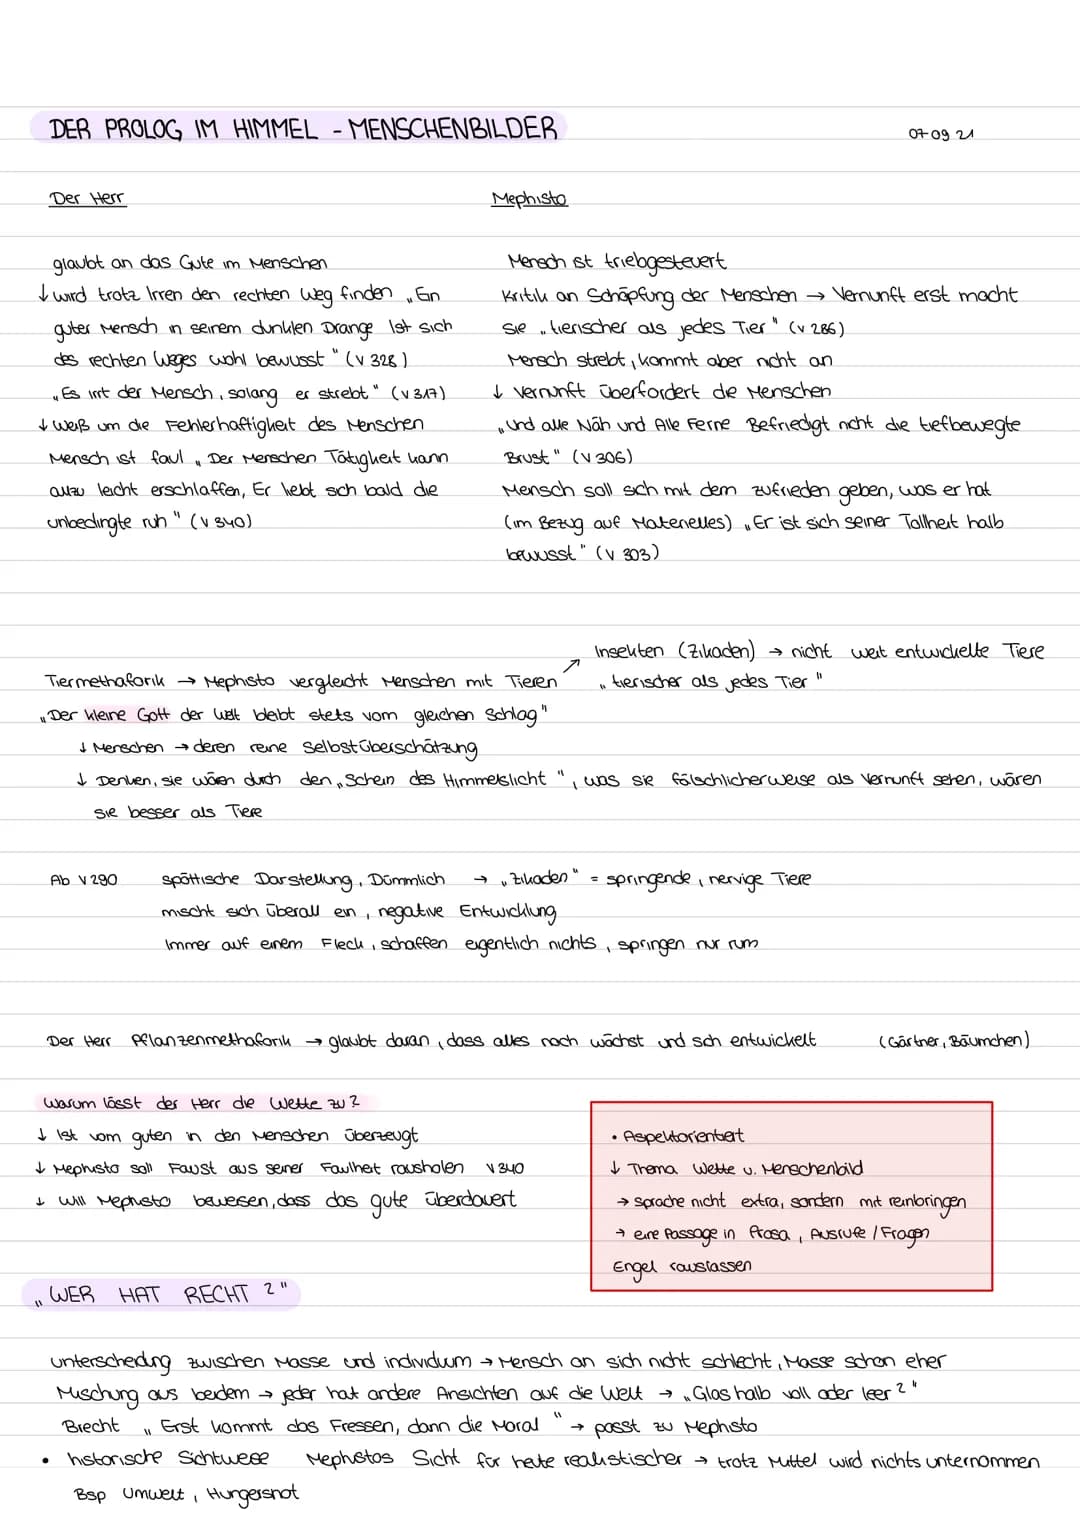 DER PROLOG IM HIMMEL - MENSCHENBILDER
07 09 21
Der Herr
glaubt an das Gute im Menschen
↓ wird trotz Irren den rechten Weg finden „Ein
guter Mensch in seinem dunklen Drange Ist sich
des rechten Weges wohl bewusst" (V 328)
„Es irrt der Mensch, solang er strebt" (V 317)
↓ Weiß um die Fehlerhaftigkeit des Menschen
Mensch ist faul „Der Menschen Tätigkeit kann
allzu leicht erschlaffen, Er liebt sich bald die
unbedingte ruh" (V 340)
Mephisto
Mensch ist triebgesteuert
Kritik an Schöpfung der Menschen → Vernunft erst macht
sie „tierischer als jedes Tier" (V 286)
Mensch strebt, kommt aber nicht an
↓ Vernunft überfordert die Menschen
„Und alle Näh und Alle Ferne Befriedigt nicht die tiefbewegte
Brust" (V 306)
Mensch soll sich mit dem zufrieden geben, was er hat
(im Bezug auf Materielles) „Er ist sich seiner Tollheit halb
bewusst" (V 303)
Insekten (Zikaden) → nicht weit entwickelte Tiere
Tiermethaforik → Mephisto vergleicht Menschen mit Tieren ↗ „tierischer als jedes Tier"
„Der kleine Gott der Welt bleibt stets vom gleichen Schlag"
↓ Menschen → deren reine Selbstüberschätzung
↓ Denken, sie wären durch den „Schein des Himmelslicht", was sie fälschlicherweise als Vernunft sehen, wären
sie besser als Tiere
Ab V 290 spöttische Darstellung, Dümmlich → „Zikaden" = springende, nervige Tiere
mischt sich überall ein, negative Entwicklung
Immer auf einem Fleck, schaffen eigentlich nichts, springen nur rum
Der Herr Pflanzenmethaforik → glaubt daran, dass alles noch wächst und sich entwickelt (Gärtner, Bäumchen)
Warum lässt der Herr die Wette zu?
↓ Ist vom guten in den Menschen überzeugt
↓ Mephisto soll Faust aus seiner Faulheit rausholen V 340
↓ Will Mephisto beweisen, dass das gute überdauert
• Aspektorientiert
↓ Thema Wette u. Menschenbild
→ Sprache nicht extra, sondern mit reinbringen
→ eine Passage in Prosa, Ausrufe / Fragen
Engel rauslassen
„WER HAT RECHT?"
Unterscheidung zwischen Masse und individuum → Mensch an sich nicht schlecht, Masse schon eher
Mischung aus beidem → jeder hat andere Ansichten auf die Welt → „Glas halb voll oder leer?"
Brecht „Erst kommt das Fressen, dann die Moral" → passt zu Mephisto
• historische Sichtweise Mephistos Sicht für heute realistischer → trotz Mittel wird nichts unternommen
Bsp Umwelt, Hungersnot